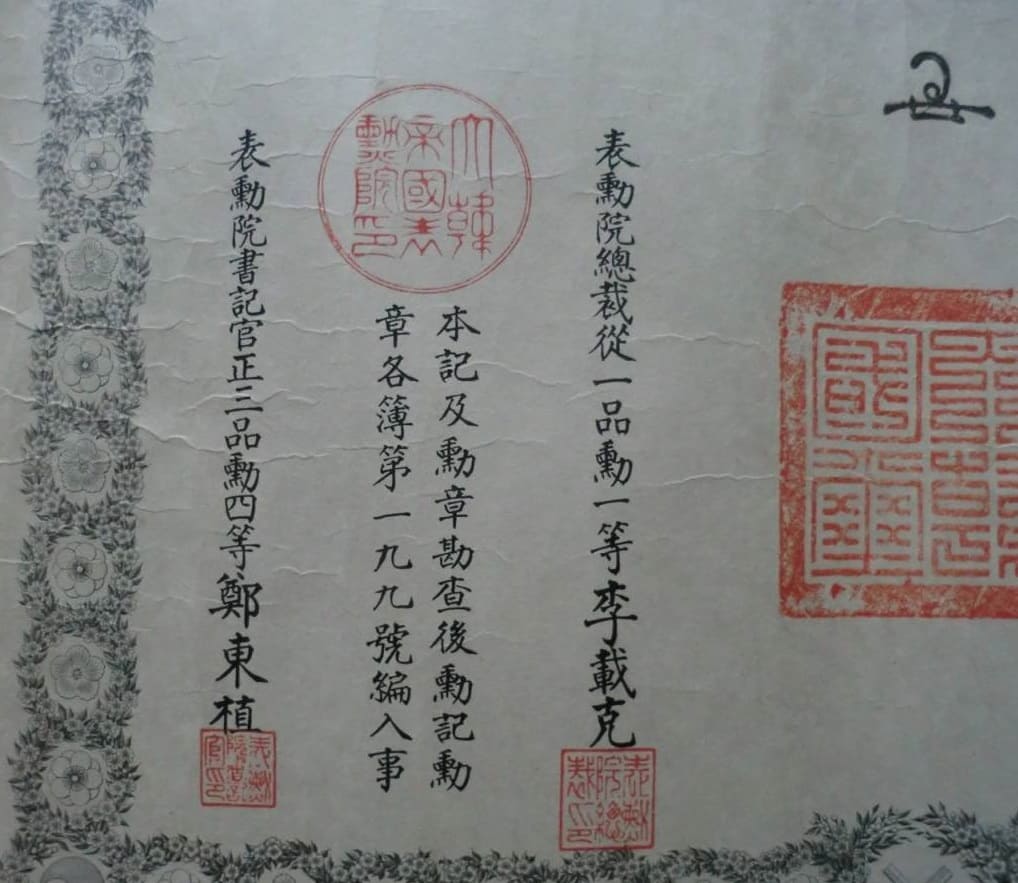 表勳院總裁從一品勳一等李載克
表勳院總裁印
大韓帝國表勳院印
本記及勳章勘査後勳記勳
章各簿第一九九號編入事
表勳院書記官正三品勳四等鄭東植